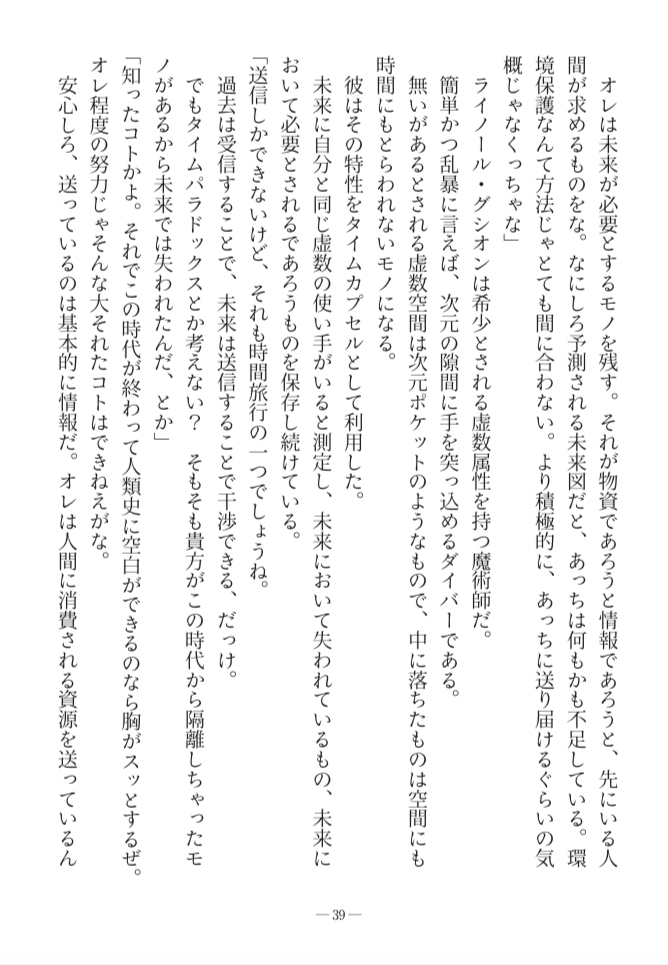 オレは未来が必要とするモノを残す。それが物資であろうと情報であろうと、先にいる人
間が求めるものをな。なにしろ予測される未来図だと、あっちは何もかも不足している。環
境保護なんて方法じゃとても間に合わない。より積極的に、あっちに送り届けるぐらいの気
概じゃなくっちゃな」
ライノール・グシオンは希少とされる虚数属性を持つ魔術師だ。
簡単かつ乱暴に言えば、次元の隙間に手を突っ込めるダイバーである。
無いがあるとされる虚数空間は次元ポケットのようなもので、中に落ちたものは空間にも
時間にもとらわれないモノになる。
彼はその特性をタイムカプセルとして利用した。
未来に自分と同じ虚数の使い手がいると測定し、未来において失われているもの、未来に
おいて必要とされるであろうものを保存し続けている。
「送信しかできないけど、それも時間旅行の一つでしょうね。
過去は受信することで、未来は送信することで干渉できる、だっけ。
でもタイムパラドックスとか考えない？　そもそも貴方がこの時代から隔離しちゃったモ
ノがあるから未来では失われたんだ、とか」
「知ったコトかよ。それでこの時代が終わって人類史に空白ができるのなら胸がスッとするぜ。
オレ程度の努力じゃそんな大それたコトはできねえがな。
安心しろ、送っているのは基本的に情報だ。オレは人間に消費される資源を送っているん
― 39 ―